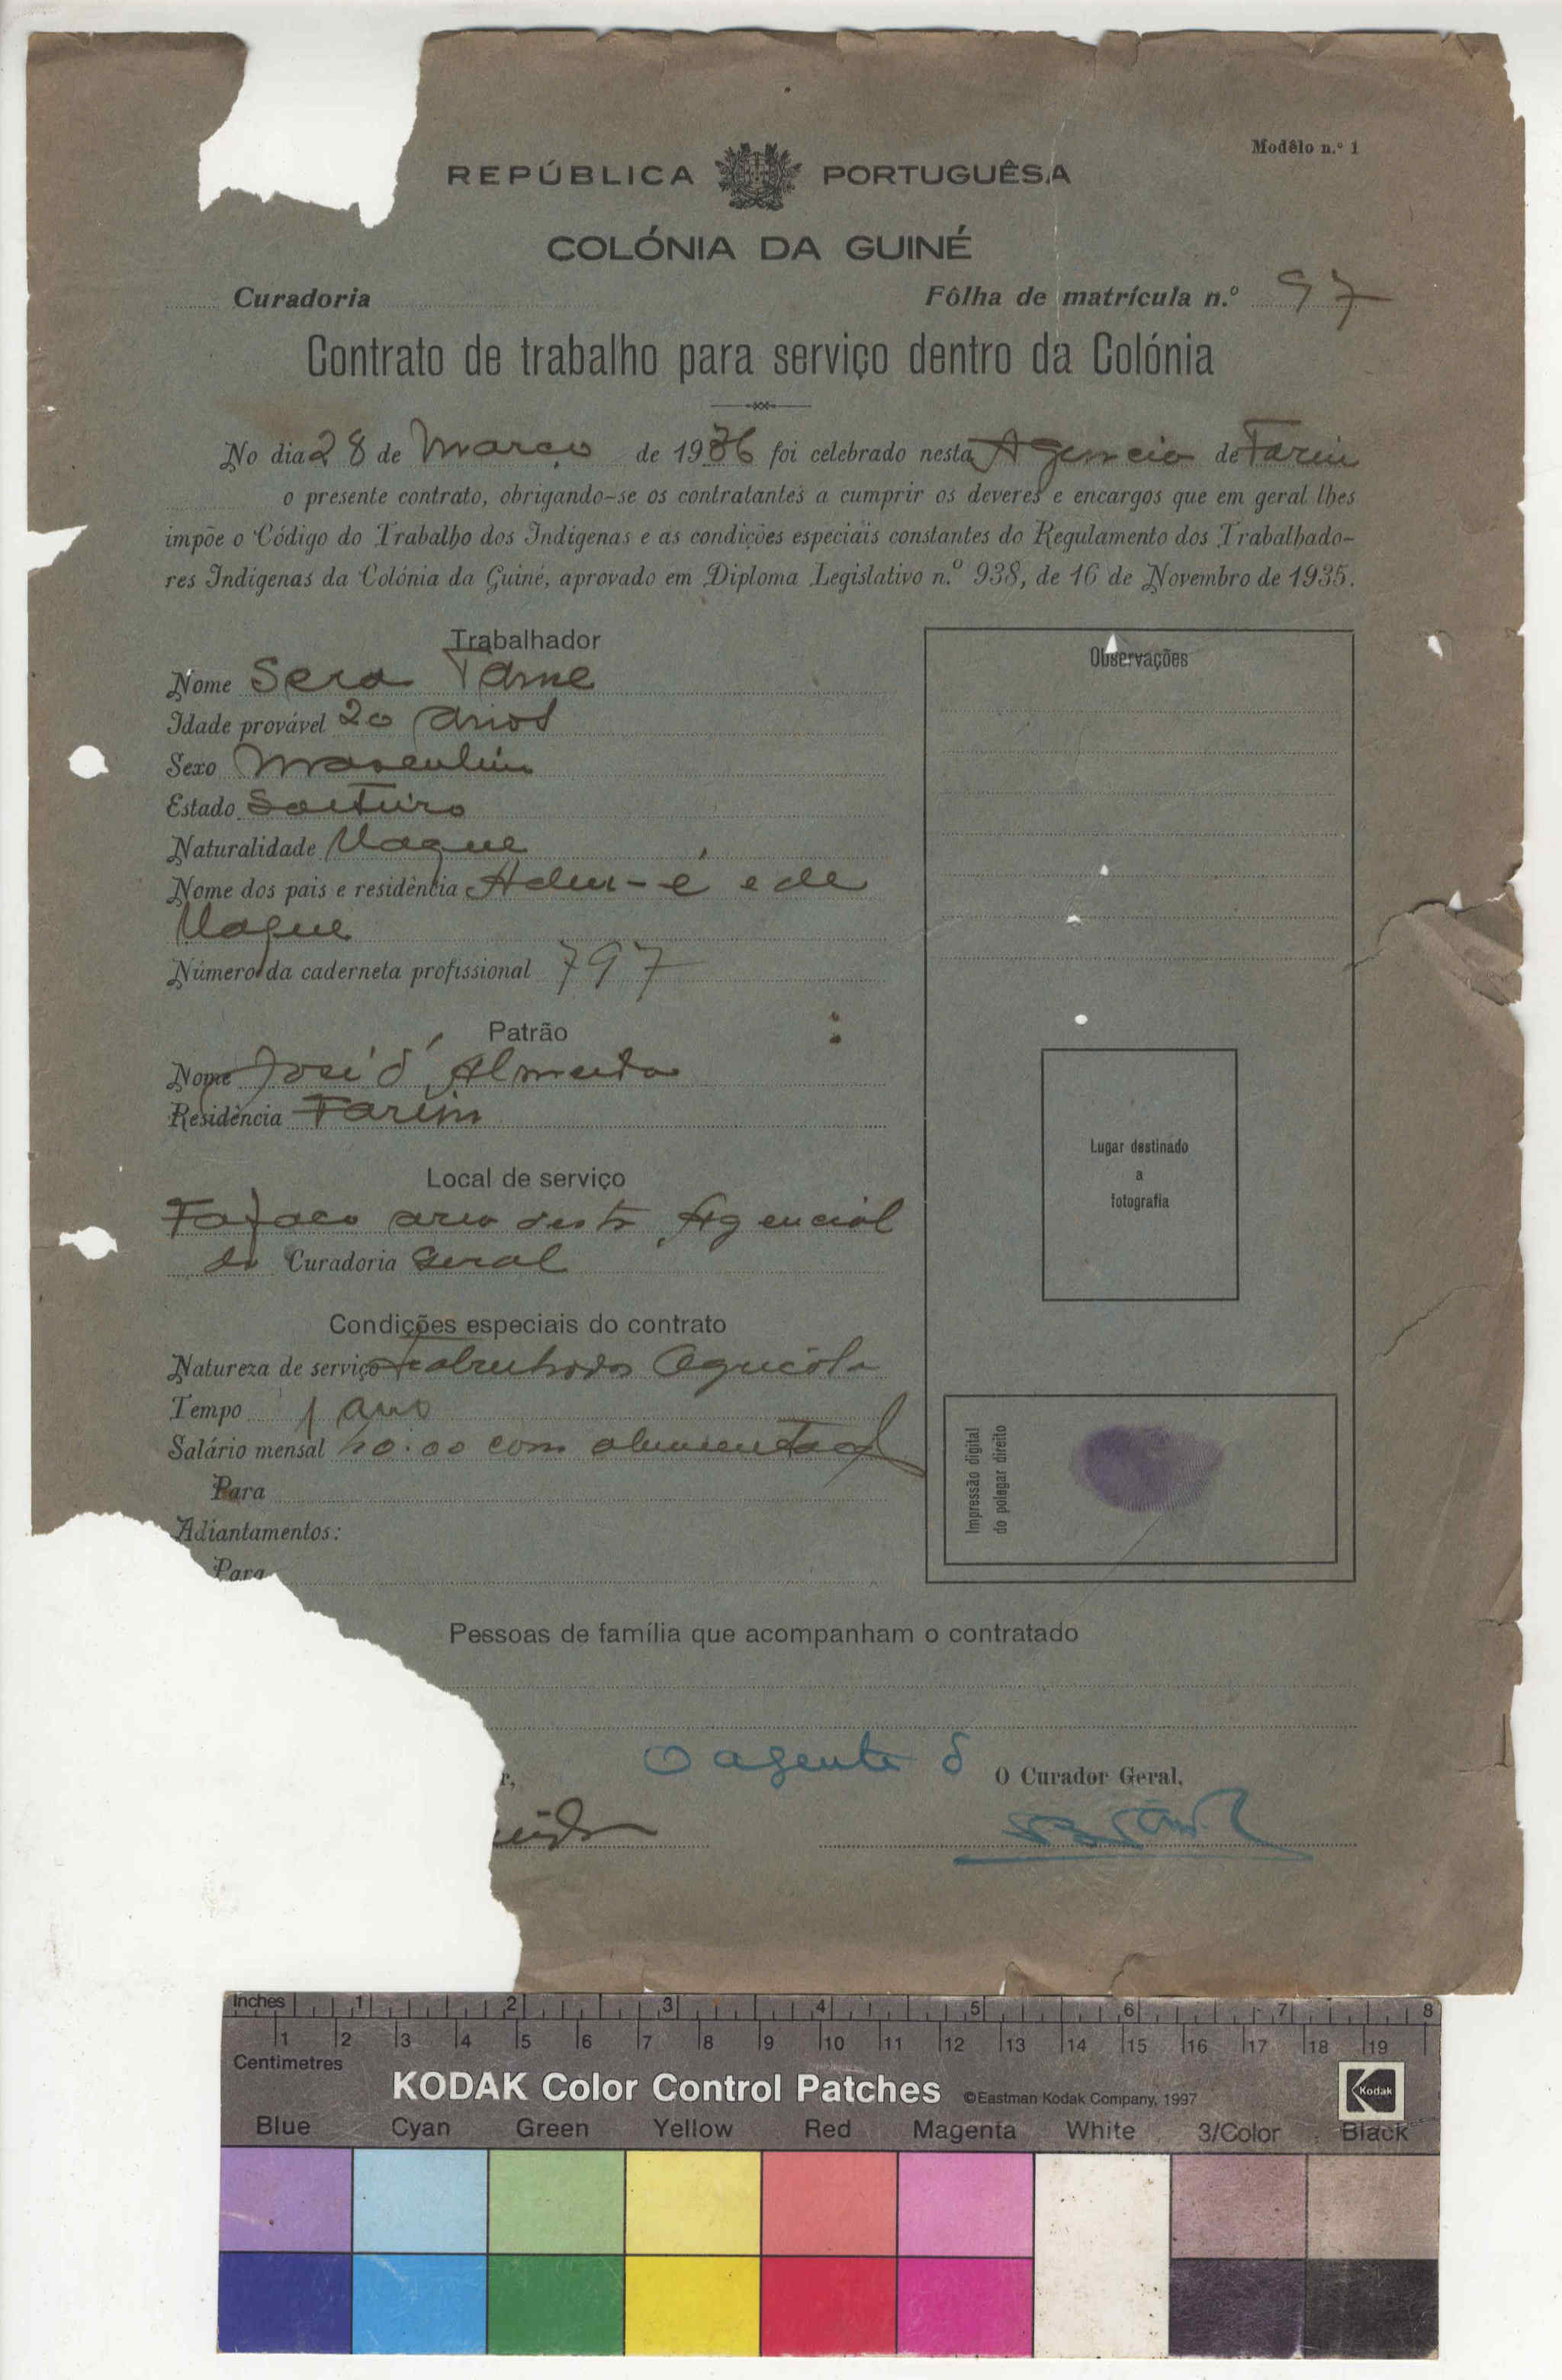 Modêlo n.º 1
REPÚBLICA PORTUGUÊSA
COLÓNIA DA GUINÉ
Curadoria Fôlha de matrícula n.º 97
Contrato de trabalho para serviço dentro da Colónia
No dia 28 de Março de 1936 foi celebrado nesta Agencia de Farim
o presente contrato, obrigando-se os contratantes a cumprir os deveres e encargos que em geral lhes
impõe o Código do Trabalho dos Indígenas e as condições especiais constantes do Regulamento dos Trabalhado-
res Indígenas da Colónia da Guiné, aprovado em Diploma Legislativo n.º 938, de 16 de Novembro de 1935.
Trabalhador
Nome Sera
Idade provável 20 anos
Sexo Masculino
Estado Solteiro
Naturalidade
Nome dos pais e residência e de
Número da caderneta profissional 797
Patrão
Nome José d'Almeida
Residência Farim
Local de serviço
area desta Agencial
da Curadoria Geral
Condições especiais do contrato
Natureza de serviço Agricola
Tempo 1 ano
Salário mensal com alimentação
Para
Adiantamentos:
Para
Observações
Lugar destinado
a
fotografia
Impressão digital
do polegar direito
Pessoas de família que acompanham o contratado
r, O agente d O Curador Geral,
eida
Inches 1 2 3 4 5 6 7 8
1 2 3 4 5 6 7 8 9 10 11 12 13 14 15 16 17 18 19
Centimetres
KODAK Color Control Patches ©Eastman Kodak Company, 1997 Kodak
Blue Cyan Green Yellow Red Magenta White 3/Color Black